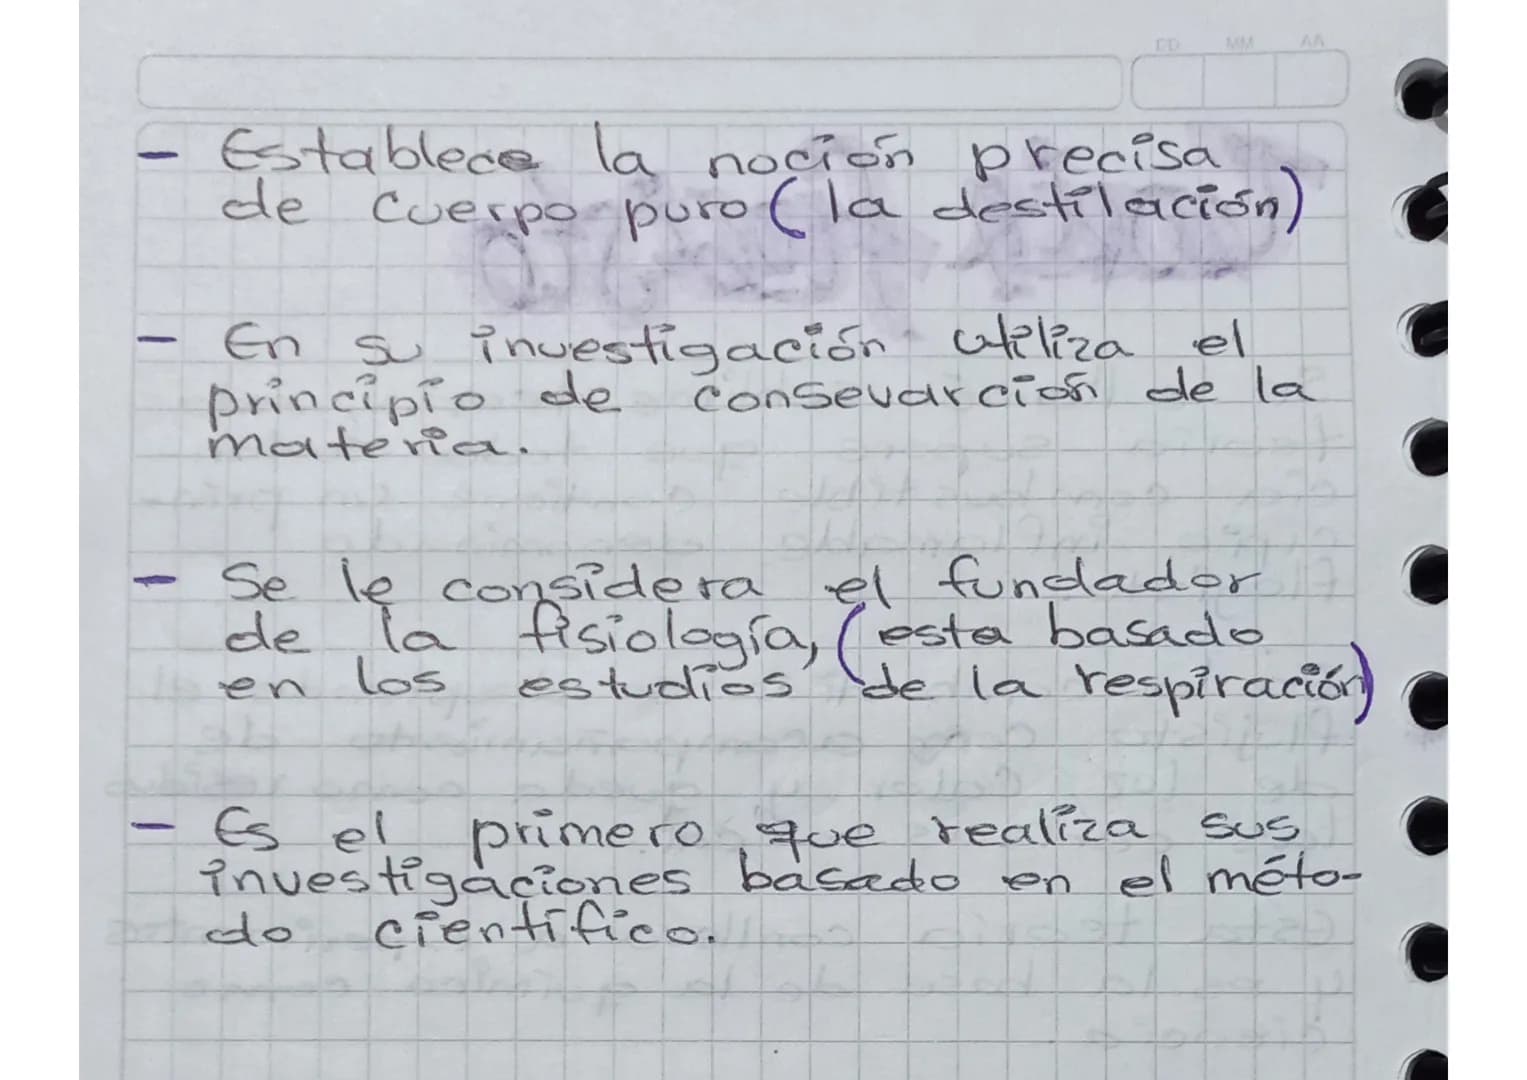 DD MM AA
- Establece la noción precisa
de cuerpo puro (la destilación)
- En su investigación utiliza el
principio de consevarción de la
materia.
- Se le considera el fundador
de la fisiología, (esta basado
en los estudios de la respiración)
- Es el primero que realiza sus
investigaciones basado en el méto-
do científico.